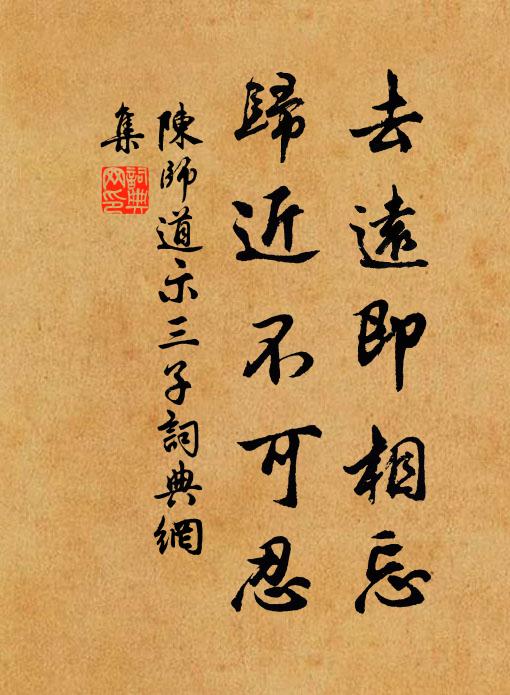 去遠即相忘
歸近不可忍
陳師道示三子詞典網
集
詞典
网印